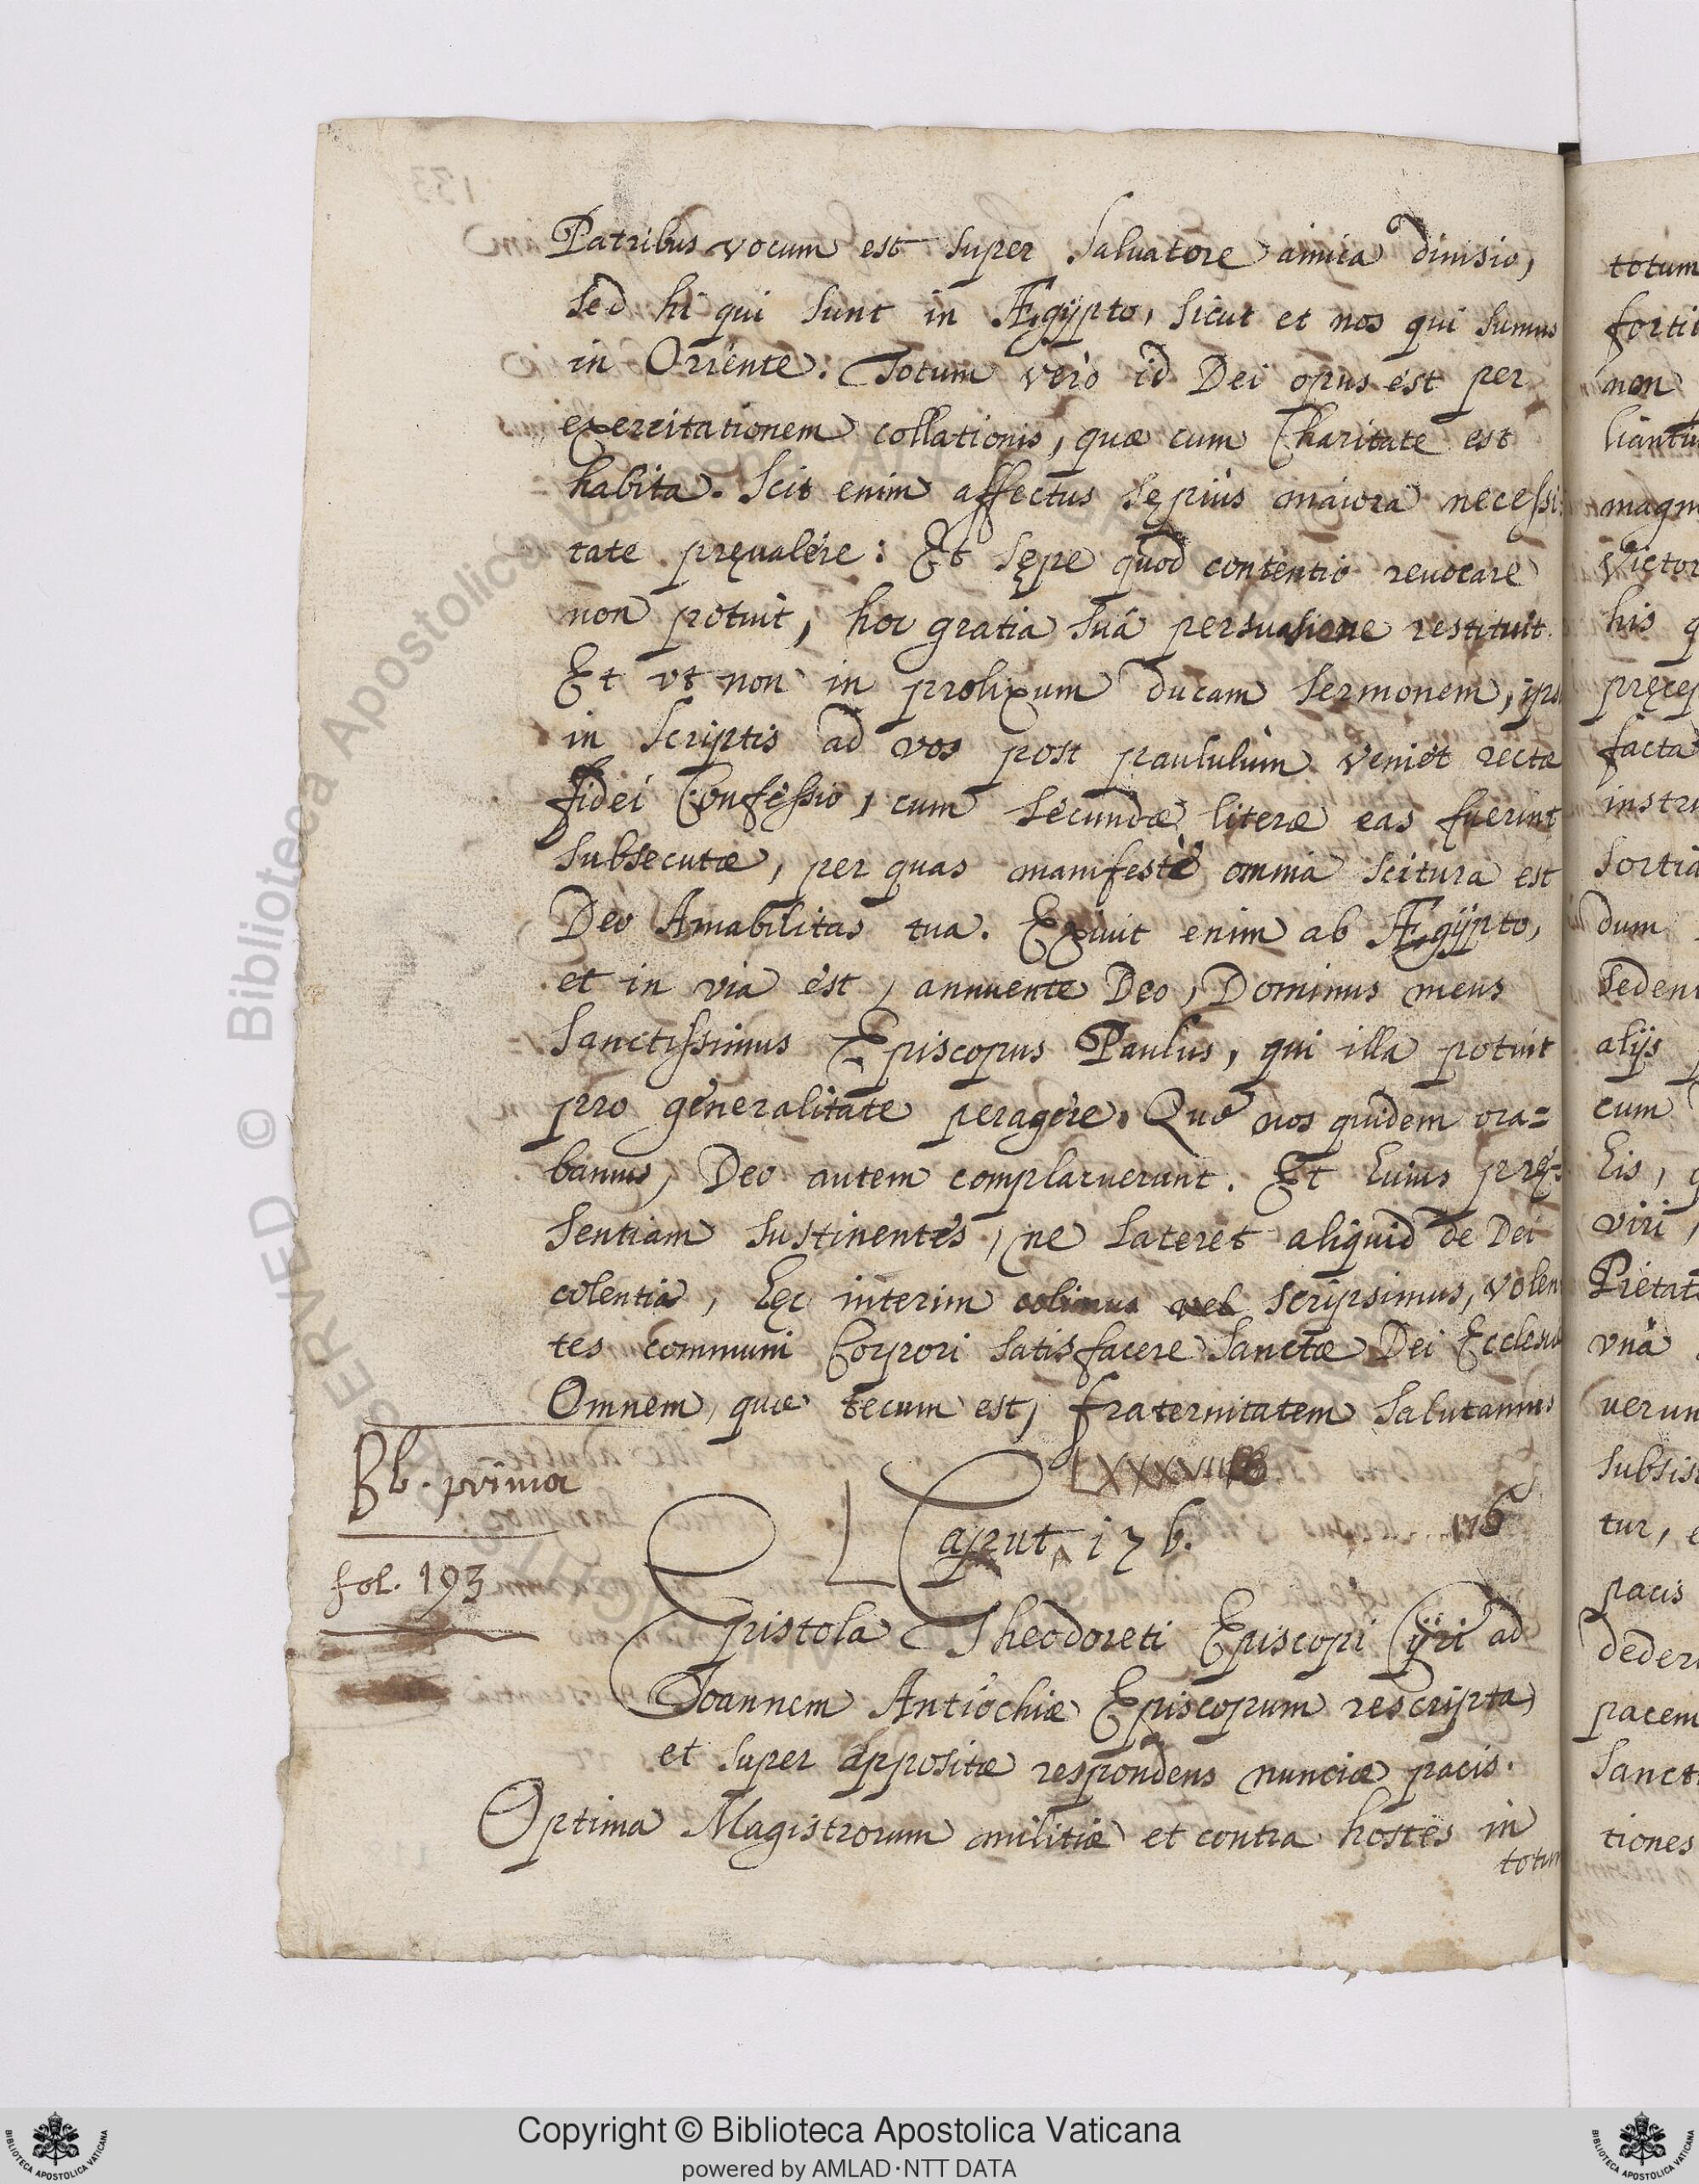 Patribus vocum est super Salvatore amica diuisio,
sed hi qui sunt in Ægÿpto, sicut et nos qui sumus
in Oriente. Totum verò id Dei opus est per
exercitationem collationis, quæ cum Charitate est
habita. Scit enim affectus sępiùs maiora necessi:
tate pręualere: Et sępe quod contentio reuocare
non potuit, hoc gratia suá persuasione restituit.
Et vt non in prolixum ducam sermonem,
in Scriptis ad vos post paululùm veniet rectæ
fidei Confessio, cum secundæ literæ eas fuerint
subsecutæ, per quas manifestè omnia scitura est
Deo Amabilitas tua. Exiuit enim ab Ægÿpto,
et in via est, annuente Deo, Dominus meus
Sanctissimus Episcopus Paulus, qui illa potuit
pro generalitate peragere. Quę nos quidem ora=
bamus, Deo autem complacuerunt. Et huius prę=
sentiam sustinentes, ne lateret aliquid de Dei
colentia, hęc interim scripsimus, volen
tes communi Corpori satisfacere Sanctæ Dei Ecclesiæ
Omnem, quæ tecum est, fraternitatem salutamus
Bb. prima
LXXXVIII
Caput 176. 176
fol. 193
Epistola Theodoreti Episcopi Cÿri ad
Joannem Antiochiæ Episcopum rescripta,
et super appositæ respondens nunciæ pacis.
Optima Magistrorum militiæ et contra hostes in
totum
totum
non
magn
victor
his
pręcep
facta
instru
dum
seden
alijs
cum
eis,
viri,
Pietat
vnà
uerun
subsis
tur,
pacis
deder
pacem
Sancti
tiones
© Biblioteca Apostolica Vaticana
Copyright © Biblioteca Apostolica Vaticana
powered by AMLAD·NTT DATA
BIBLIOTECA APOSTOLICA VATICANA
BIBLIOTECA APOSTOLICA VATICANA